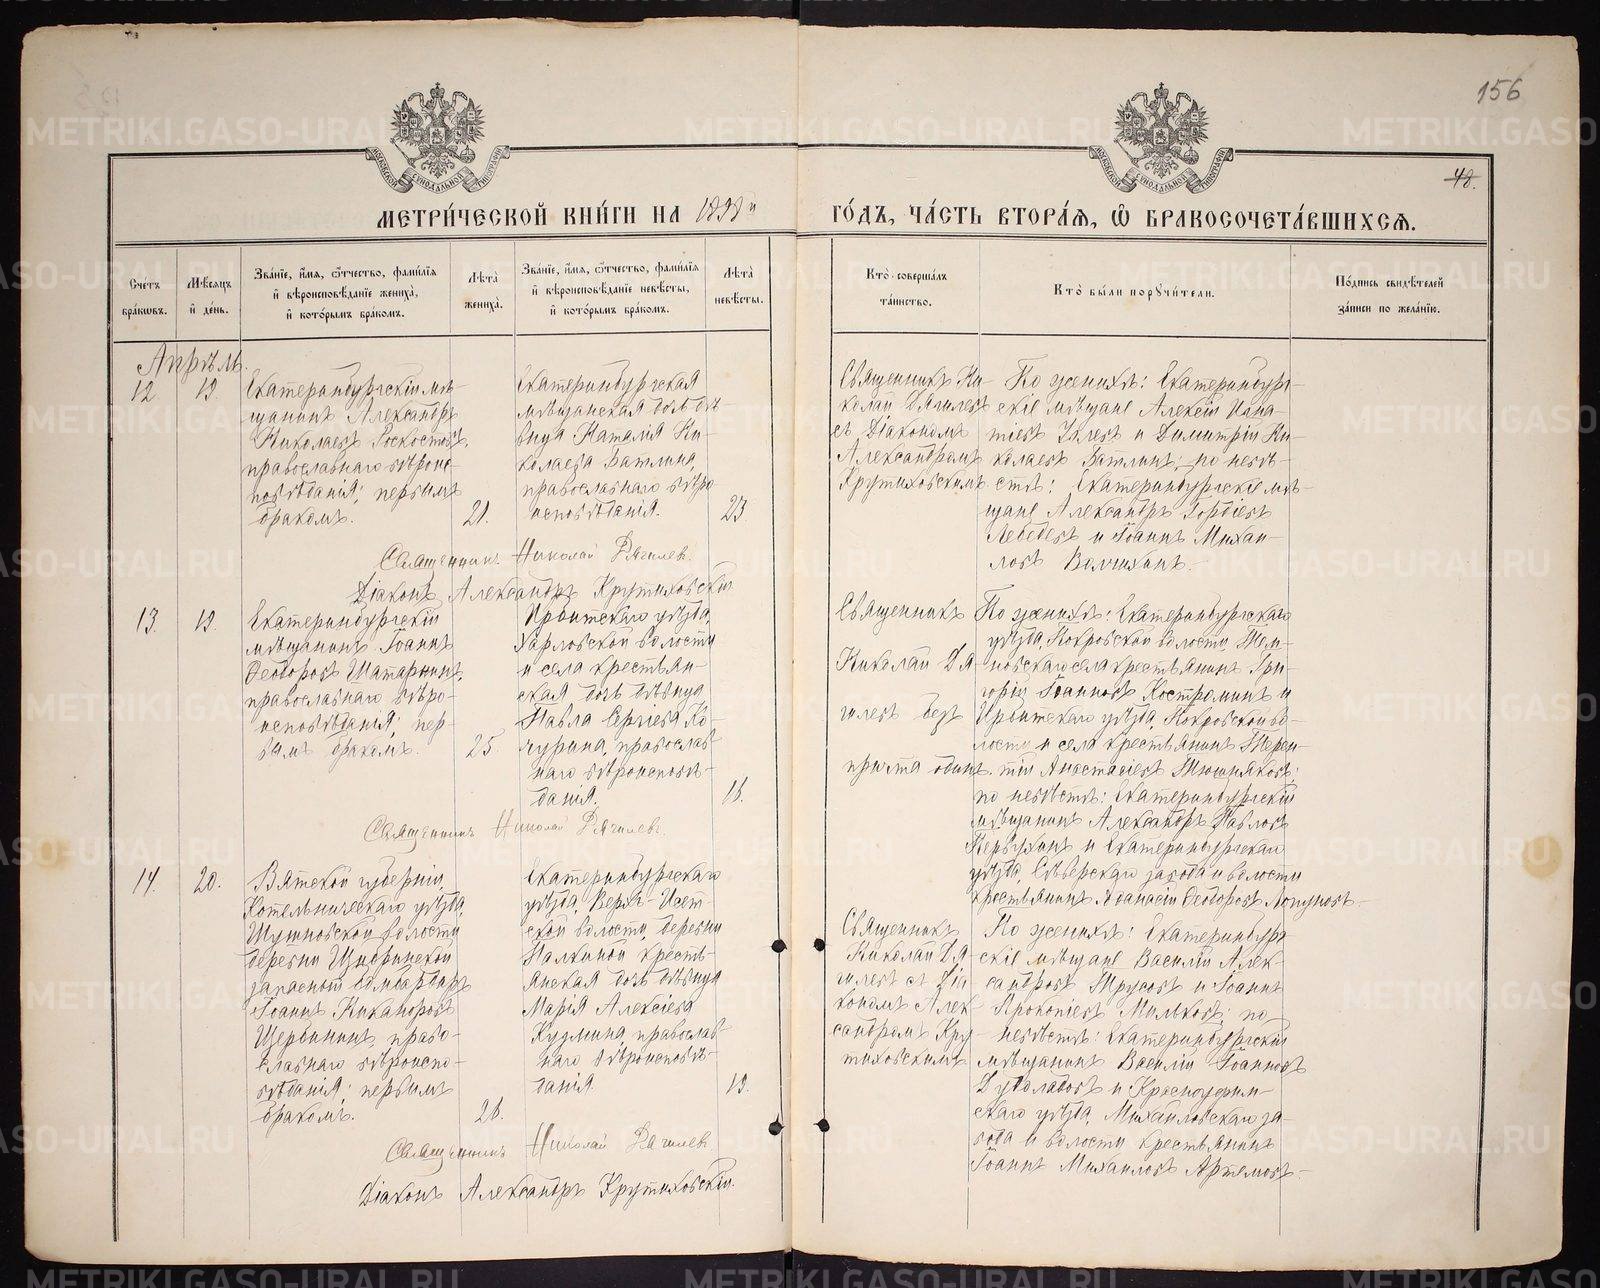 156
48.
МОСКОВСКОЙ СѴНОДАЛЬНОЙ ТИПОГРАФІИ
МОСКОВСКОЙ СѴНОДАЛЬНОЙ ТИПОГРАФІИ
МЕТРИ́ЧЕСКОЙ КНИ́ГИ НА 1898й ГО́ДЪ, ЧА́СТЬ ВТОРА́Ѧ, Ѽ БРАКОСОЧЕТА́ВШИХСѦ.
Сче́тъ бра́кѡвъ.
Мѣ́сѧцъ и҆ де́нь.
Зва́нїе, и҆́мѧ, ѻ҆́тчество, фами́лїѧ и҆ вѣроисповѣ́данїе жениха̀, и҆ кото́рымъ бра́комъ.
Лѣ́та жениха̀.
Зва́нїе, и҆́мѧ, ѻ҆́тчество, фами́лїѧ и҆ вѣроисповѣ́данїе невѣ́сты, и҆ кото́рымъ бра́комъ.
Лѣ́та невѣ́сты.
Кто̀ соверша́лъ та́инство.
Кто̀ бы́ли порꙋчи́тели.
По́дпись свидѣ́телей за́писи по жела́нїю.
Апрѣль.
12
19.
Екатеринбургскій мѣ-
щанинъ Александръ
Николаевъ
православнаго вѣроис-
повѣданія; первымъ
бракомъ.
21.
Екатеринбургская
мѣщанская дочь дѣ-
вица Наталія Ни-
колаева Ватлина,
православнаго вѣро-
исповѣданія.
23.
Священникъ Ни-
колай Дягилевъ
съ Діакономъ
Александромъ
Крутиховскимъ
По женихѣ: Екатеринбург-
скіе мѣщане Алексій Игна-
тіевъ и Димитрій Ни-
колаевъ Ватлинъ; по невѣ-
стѣ: Екатеринбургскіе мѣ-
щане Александръ Гордіевъ
Лебедевъ и Іоаннъ Михаи-
ловъ
Священникъ Николай Дягилевъ.
Діаконъ Александръ Крутиховскій.
13.
19.
Екатеринбургскій
мѣщанинъ Іоаннъ
Ѳеодоровъ
православнаго вѣро-
исповѣданія; пер-
вымъ бракомъ.
25.
Ирбитскаго уѣзда,
Харловской волости
и села крестьян-
ская дочь дѣвица
Павла Сергіева Ко-
чурина, православ-
наго вѣроисповѣ-
данія.
18.
Священникъ
Николай Дя-
гилевъ безъ
причта одинъ.
По женихѣ: Екатеринбургскаго
уѣзда, Покровской волости, Тем-
новскаго села крестьянинъ Гри-
горій Іоанновъ Костроминъ и
Ирбитскаго уѣзда, Покровской во-
лости и села крестьянинъ Терен-
тій Анастасіевъ
по невѣстѣ: Екатеринбургскій
мѣщанинъ Александръ Павловъ
и Екатеринбургскаго
уѣзда, Сѣверскаго завода и волости
крестьянинъ Аѳанасій Ѳеодоровъ
Священникъ Николай Дягилевъ.
14.
20.
Вятской губерніи,
Котельническаго уѣзда,
волости
деревни
запасный бомбардиръ
Іоаннъ Никаноровъ
Щербининъ, право-
славнаго вѣроиспо-
вѣданія; первымъ
бракомъ.
28.
Екатеринбургскаго
уѣзда, Верхъ-Исет-
ской волости, деревни
Палкиной кресть-
янская дочь дѣвица
Марія Алексіева
Кузмина, православ-
наго вѣроисповѣ-
данія
19.
Священникъ
Николай Дя-
гилевъ съ Діа-
кономъ Алек-
сандромъ Кру-
тиховскимъ
По женихѣ: Екатеринбург-
скіе мѣщане Василій Алек-
сандровъ Трусовъ и Іоаннъ
Прокопіевъ Мильковъ; по
невѣстѣ: Екатеринбургскій
мѣщанинъ Василій Іоанновъ
и Красноуфим-
скаго уѣзда, Михайловскаго за-
вода и волости крестьянинъ
Іоаннъ Михаиловъ Артемовъ
Священникъ Николай Дягилевъ
Діаконъ Александръ Крутиховскій.
METRIKI.GASO-URAL.RU